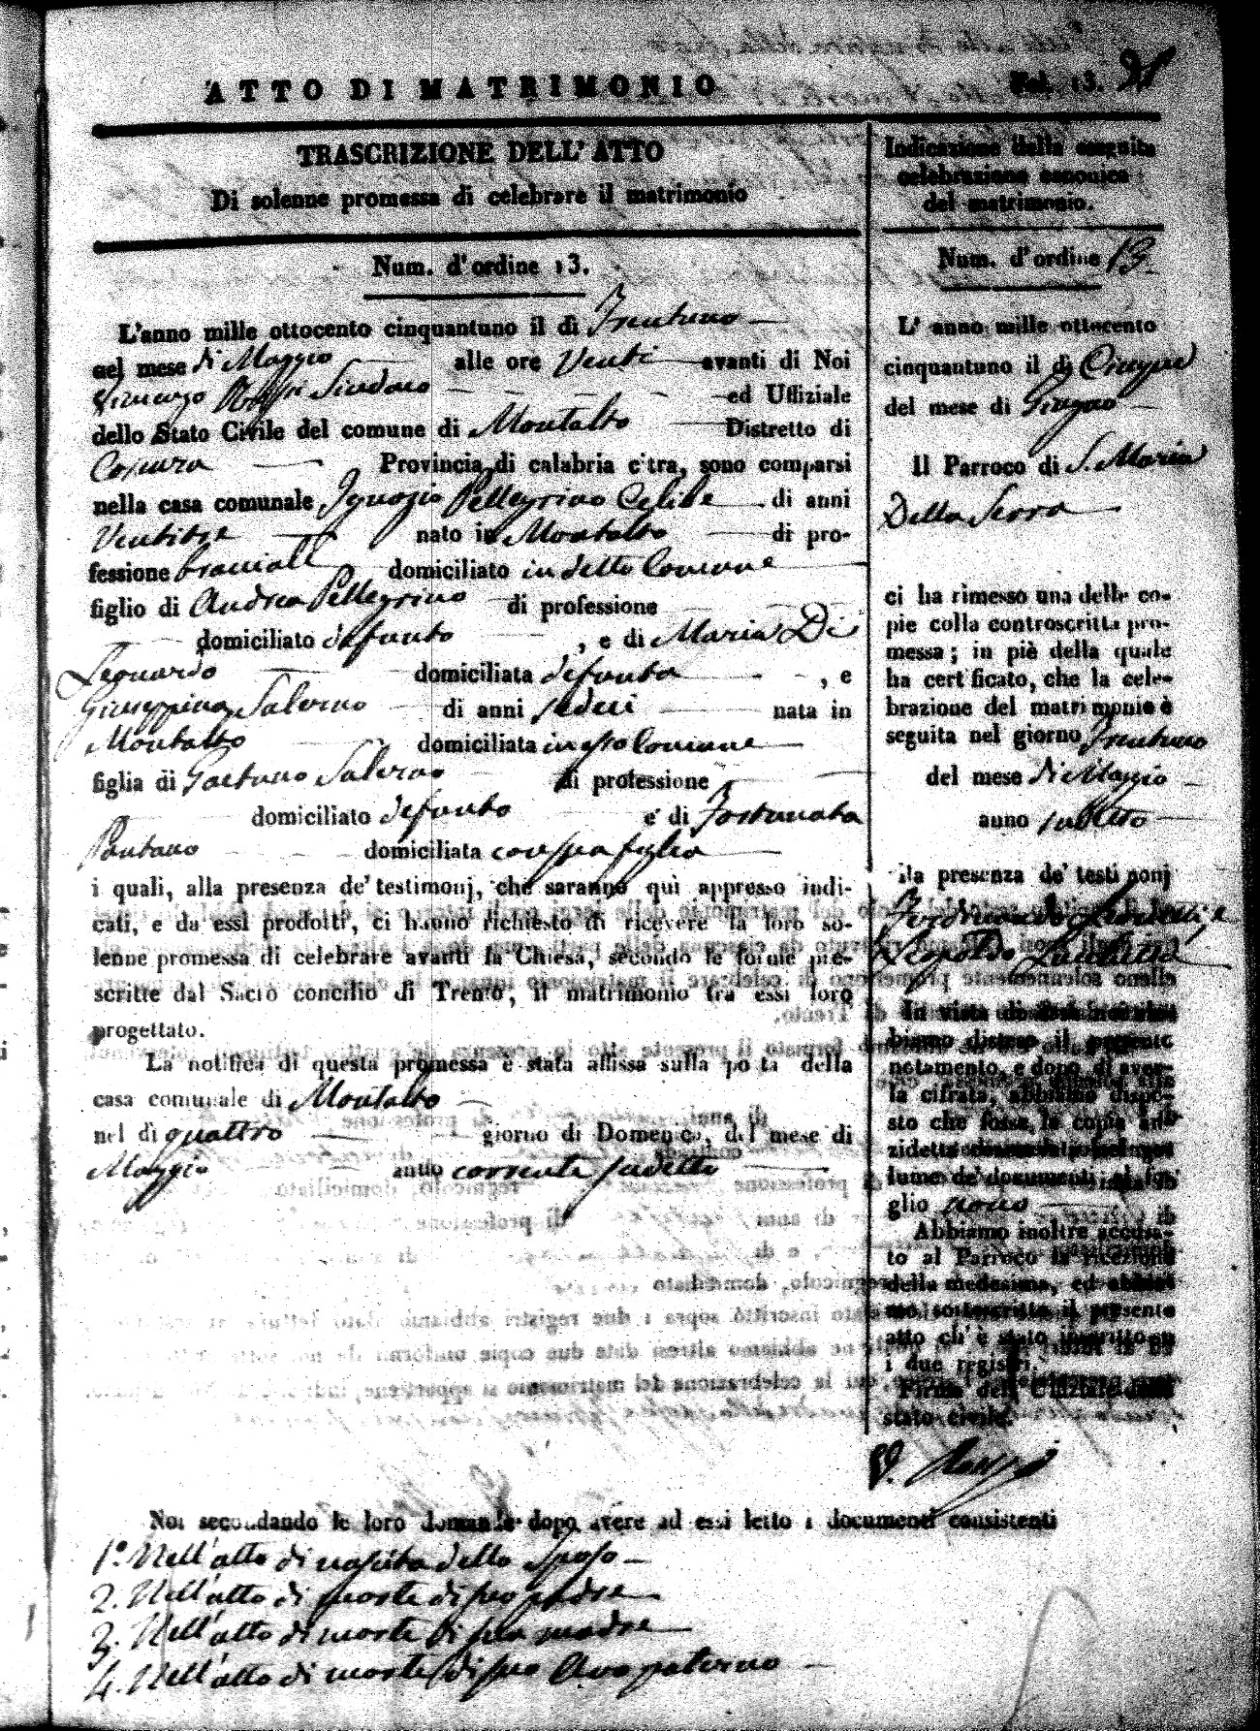 ATTO DI MATRIMONIO
Fol. 13.
TRASCRIZIONE DELL'ATTO
Di solenne promessa di celebrare il matrimonio
Num. d'ordine 13.
L'anno mille ottocento cinquantuno il dì Trentuno
nel mese di Maggio alle ore Venti avanti di Noi
Sindaco ed Uffiziale
dello Stato Civile del comune di Montalto Distretto di
Cosenza Provincia di calabria citra, sono comparsi
nella casa comunale Ignazio Pellegrino Celibe di anni
Ventitre nato in Montalto di pro-
fessione bracciale domiciliato in detto Comune
figlio di Andrea Pellegrino di professione
domiciliato defunto, e di Maria Di
Leonardo domiciliata defunta, e
Giuseppina Salerno di anni sedeci nata in
Montalto domiciliata in esso Comune
figlia di Gaetano Salerno di professione
domiciliato defunto e di Fortunata
Pantano domiciliata con sua figlia
i quali, alla presenza de' testimonj, che saranno quì appresso indi-
cati, e da essi prodotti, ci hanno richiesto di ricevere la loro so-
lenne promessa di celebrare avanti la Chiesa, secondo le forme pre-
scritte dal Sacro concilio di Trento, il matrimonio tra essi loro
progettato.
La notifica di questa promessa è stata affissa sulla porta della
casa comunale di Montalto
nel dì quattro giorno di Domenica, del mese di
Maggio anno corrente sudetto
Indicazione della seguita
celebrazione canonica
del matrimonio.
Num. d'ordine 13.
L' anno mille ottocento
cinquantuno il dì Cinque
del mese di Giugno
Il Parroco di S. Maria
Della Serra
ci ha rimesso una delle co-
pie colla controscritta pro-
messa; in piè della quale
ha certificato, che la cele-
brazione del matrimonio è
seguita nel giorno Trentuno
del mese di Maggio
anno sudetto
alla presenza de' testimonj
Ferdinando e
Leopoldo
In vista di
biamo disteso il presente
notamento, e dopo di aver-
la cifrata, abbiamo dispo-
sto che fosse la copia an-
zidetta
lume de' documenti al fo-
glio nono
Abbiamo inoltre accusa-
to al Parroco la ricezione
della medesima, ed abbia-
mo sottoscritto il presente
atto ch'è stato inscritto su
i due registri.
Firma dell' Uffiziale dello
stato civile.
Noi secondando le loro domande dopo avere ad essi letto i documenti consistenti
1.º Nell'atto di nascita dello Sposo
2. Nell'atto di morte di suo padre
3. Nell'atto di morte di sua madre
4. Nell'atto di morte di suo Avo paterno